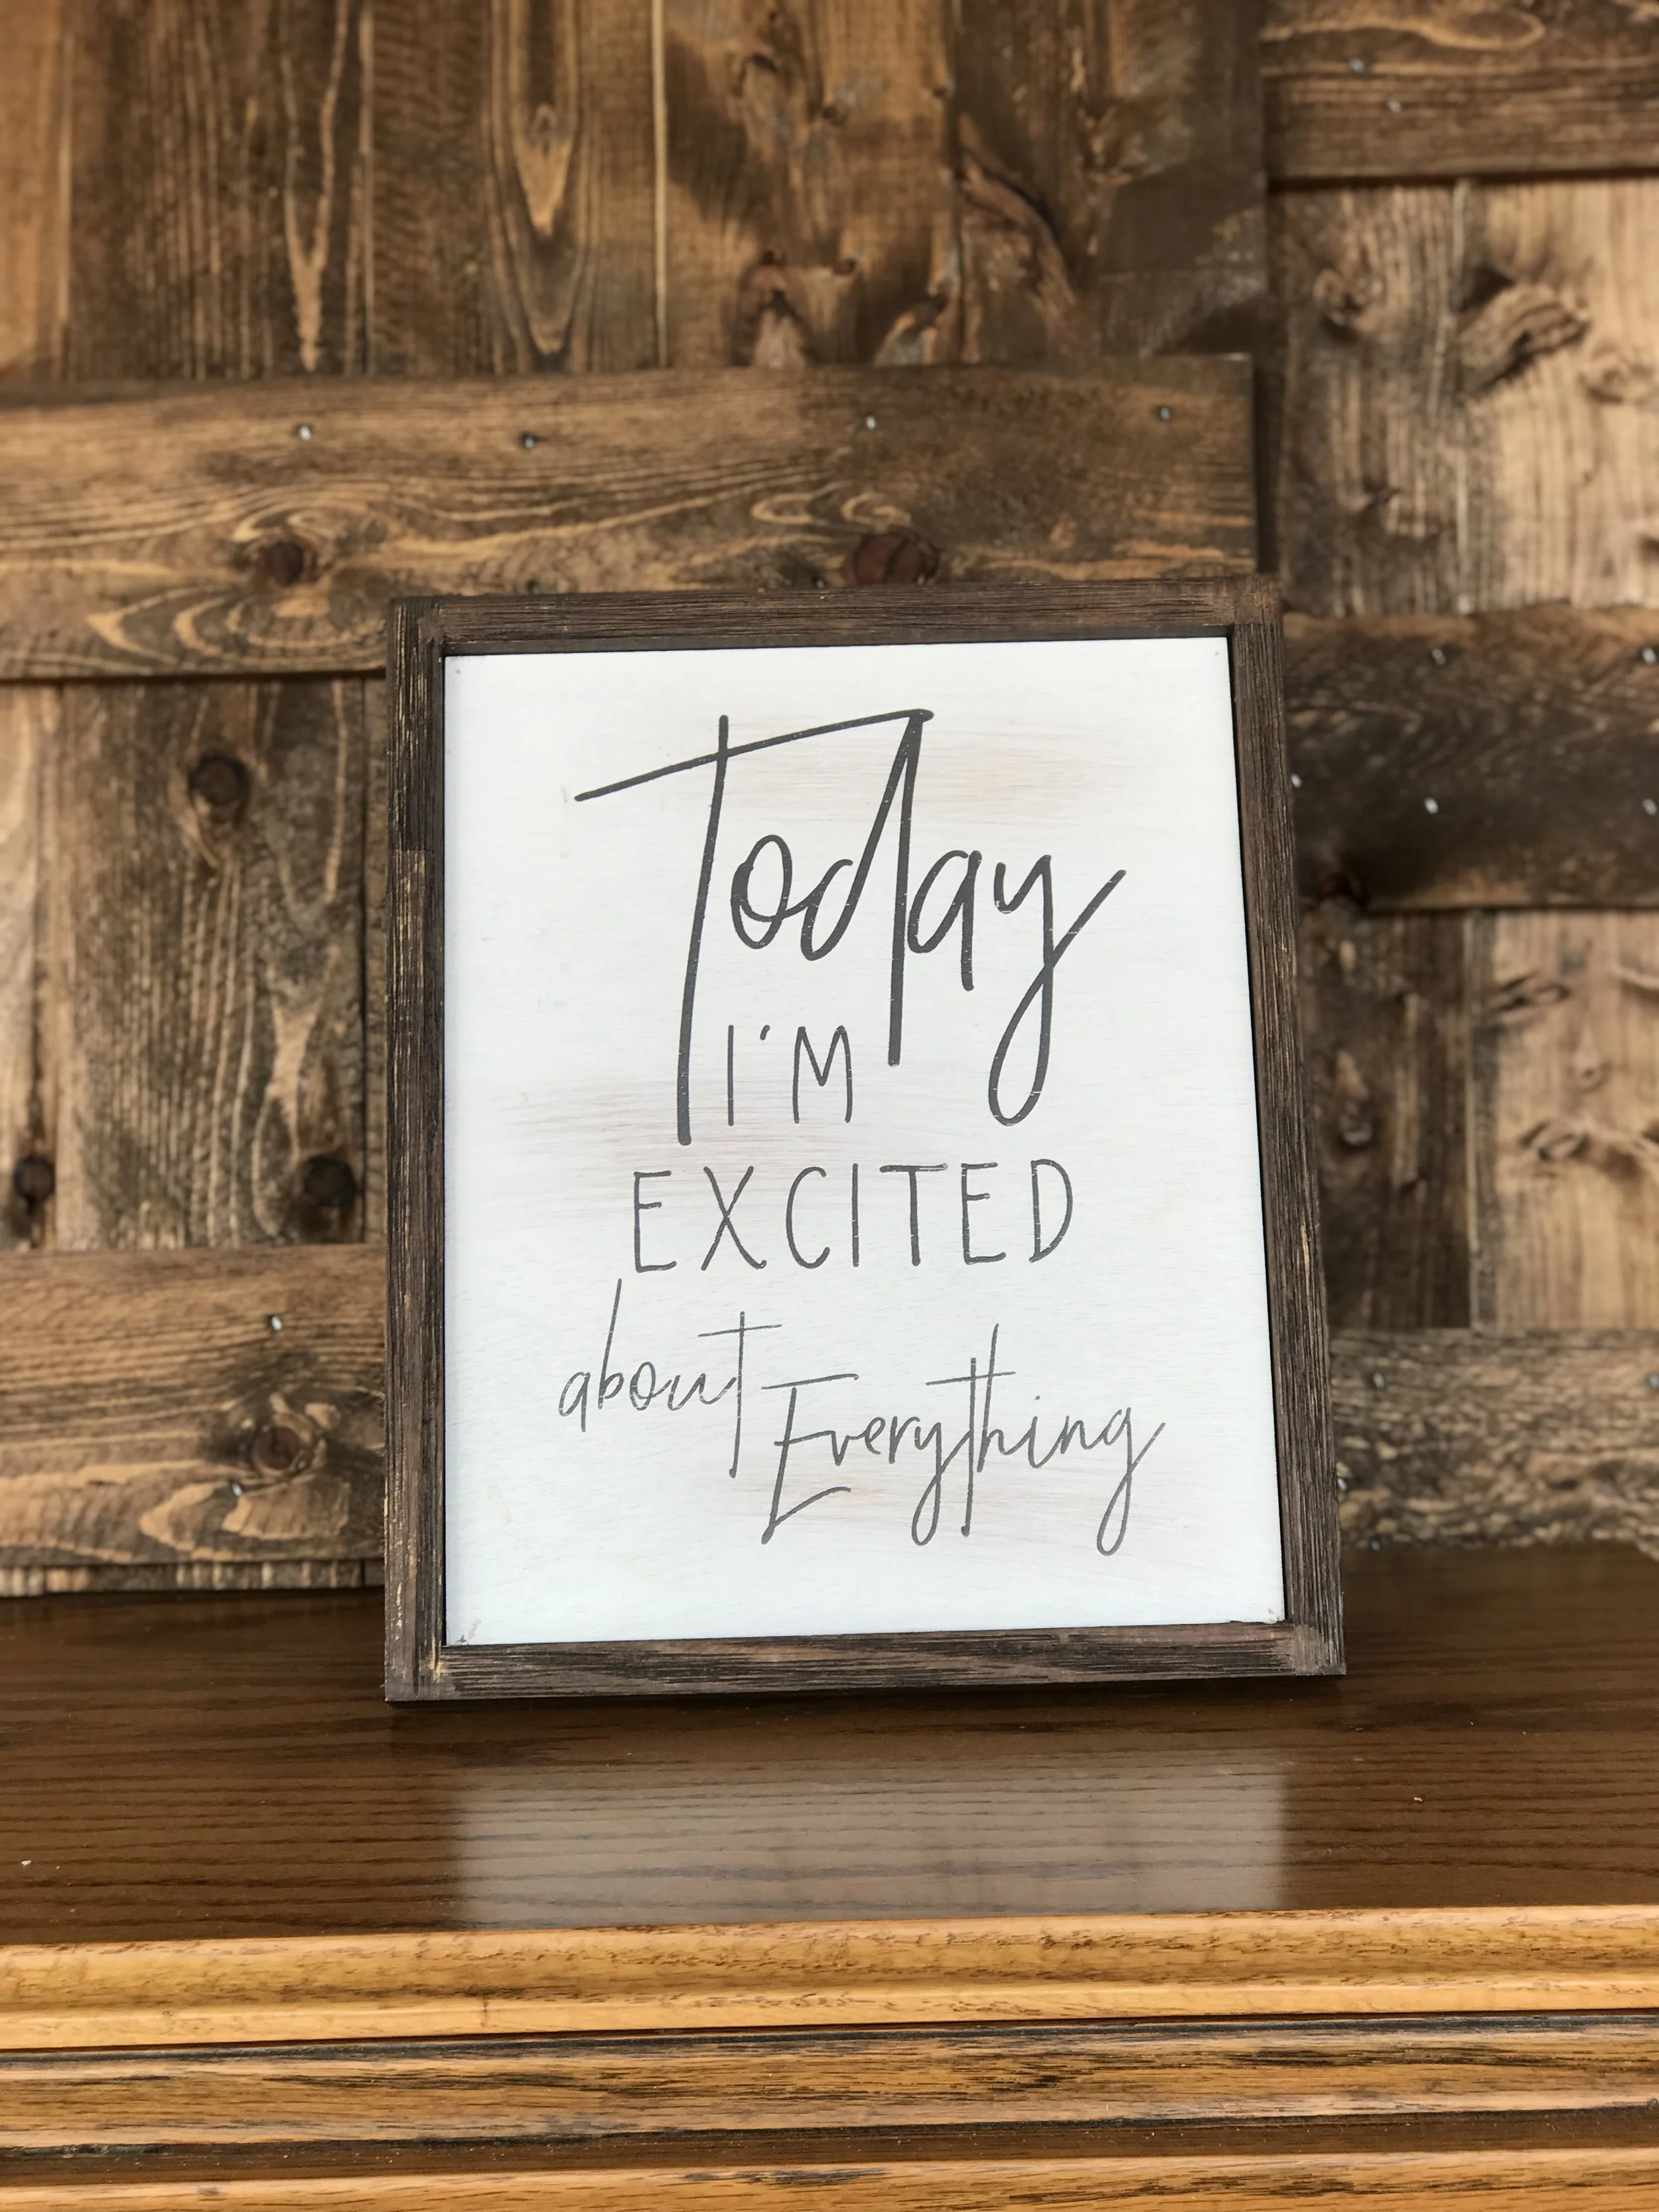 Today
I'M
EXCITED
about Everything